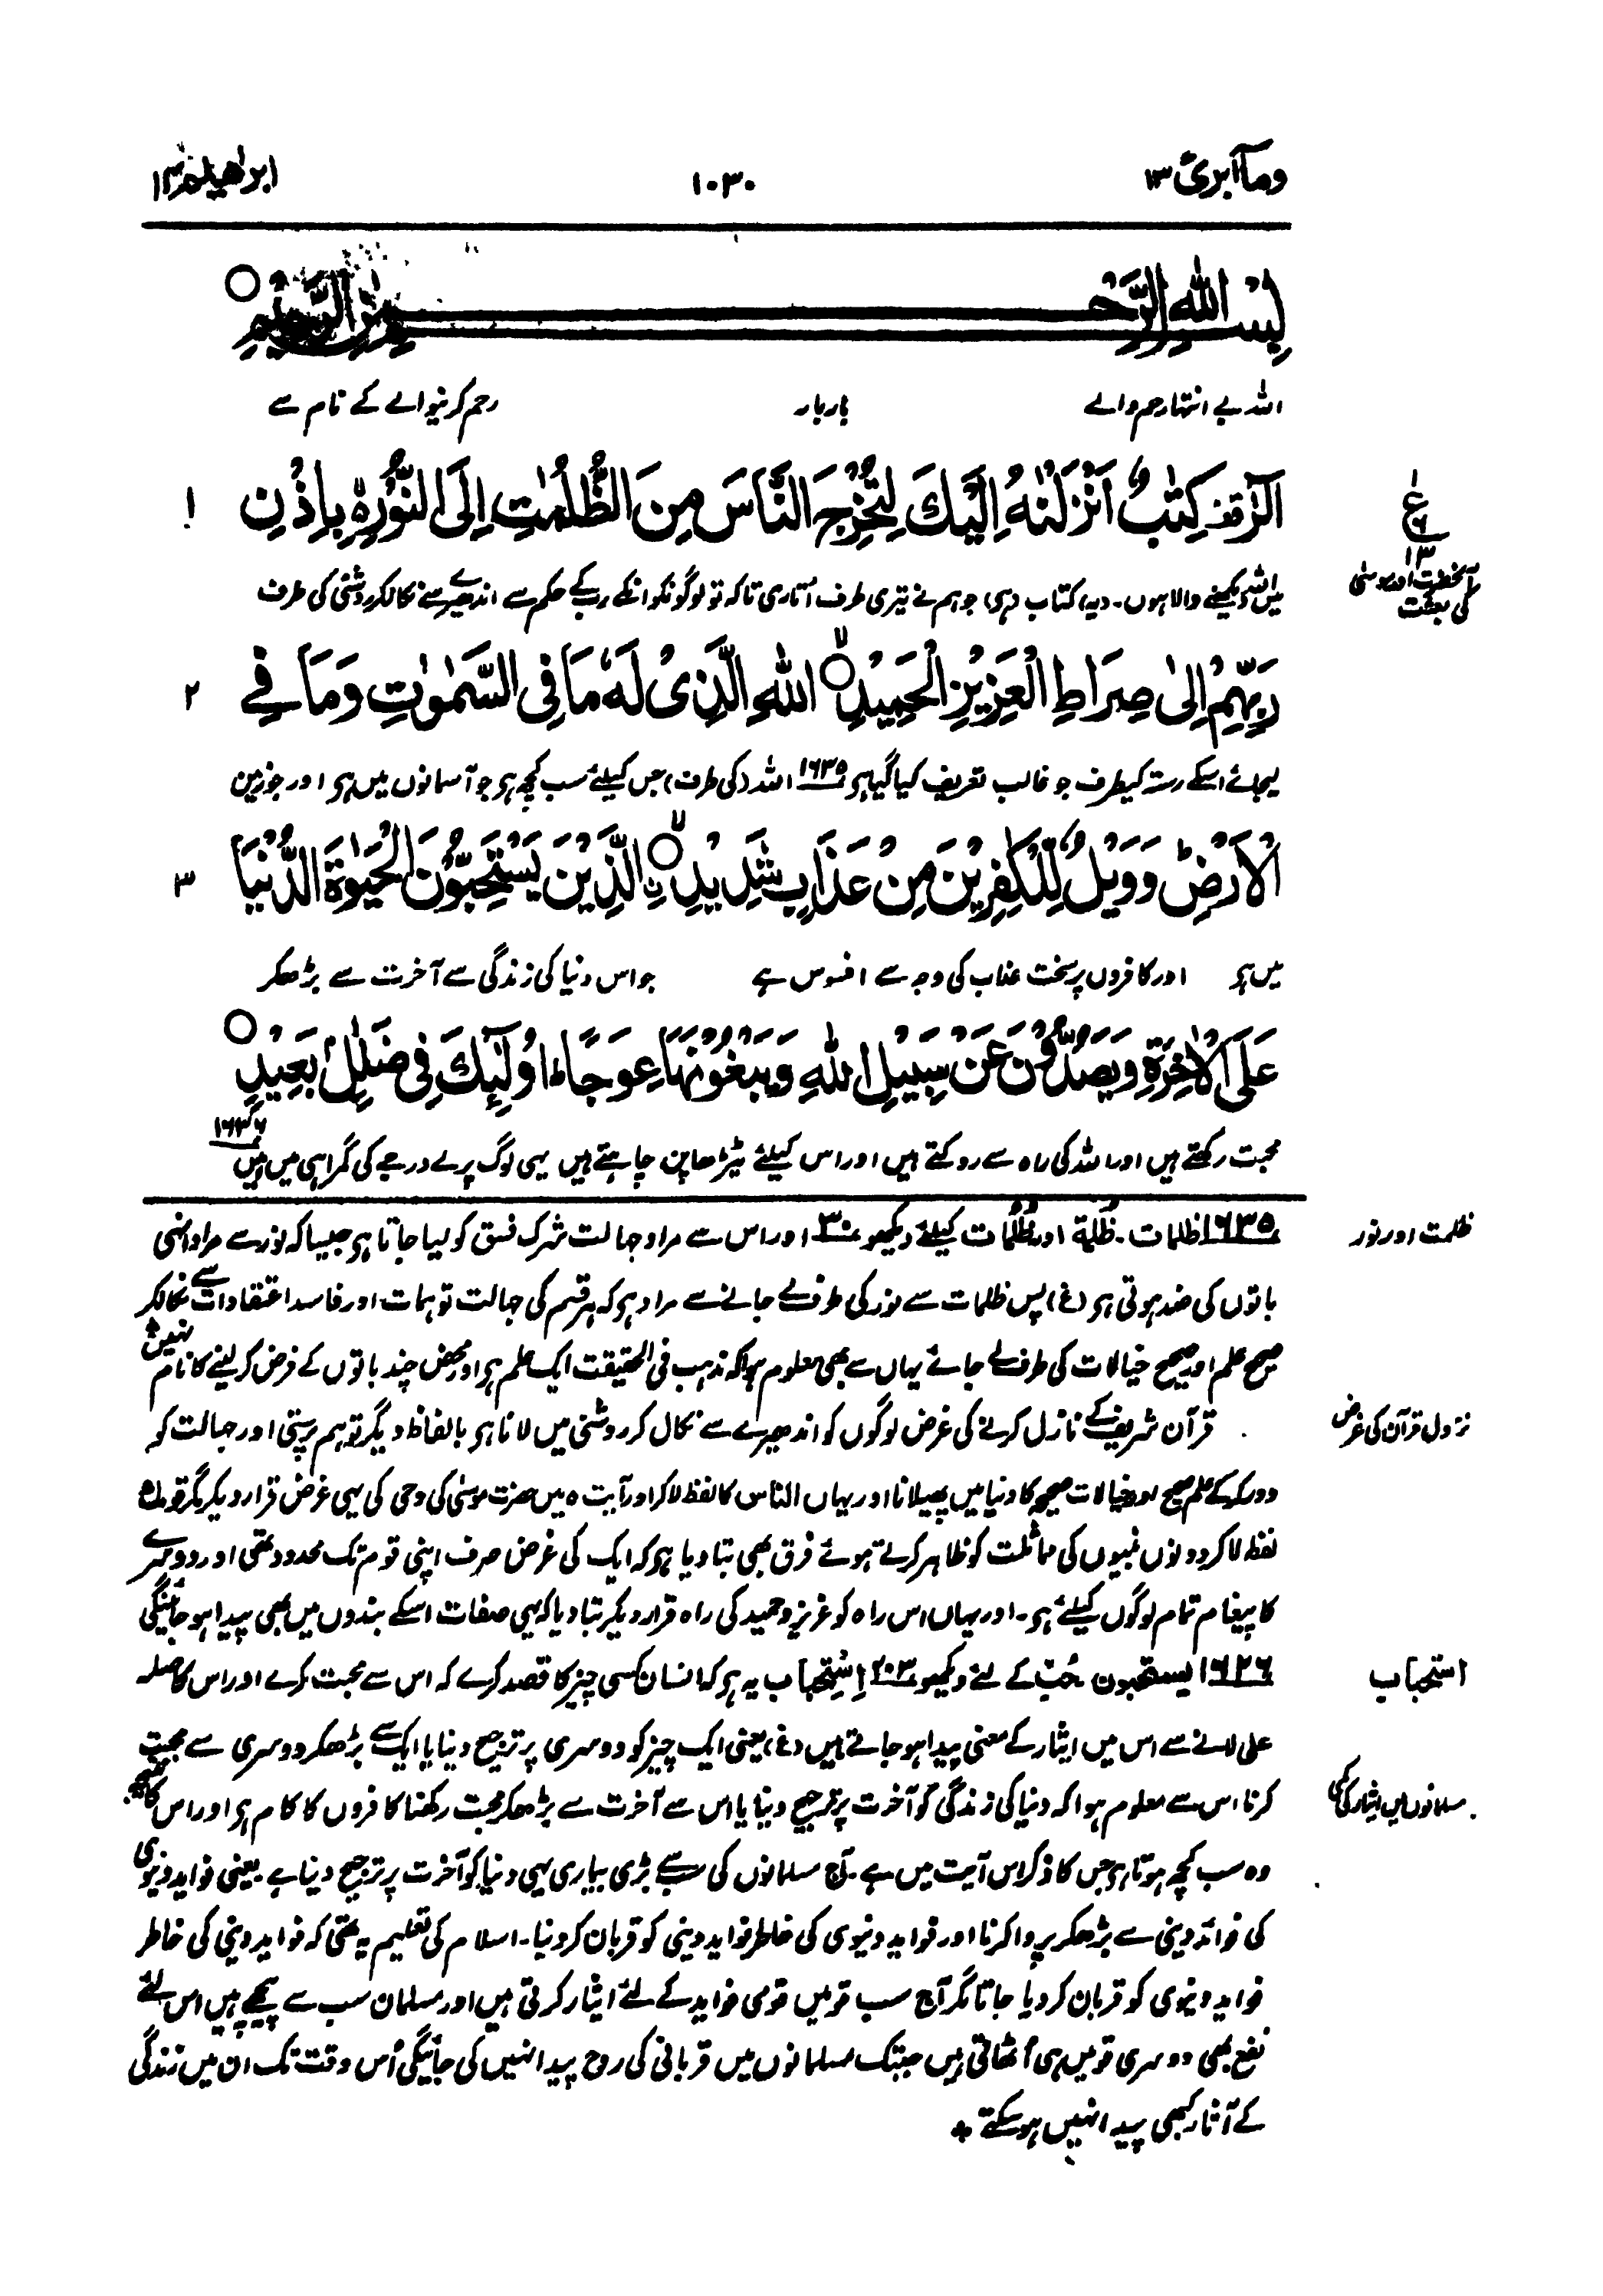 وما ابرئ ۱۳
۱۰۳۰
ابراھیم ۱۴
بِسْمِ اللّٰهِ الرَّحْمٰنِ الرَّحِيْمِ ○
اللہ بے انتہا رحم والے بار بار رحم کرنیوالے کے نام سے
الٓرٰ قف كِتٰبٌ اَنْزَلْنٰهُ اِلَيْكَ لِتُخْرِجَ النَّاسَ مِنَ الظُّلُمٰتِ اِلَى النُّوْرِ ۵ بِاِذْنِ ۱
ع
۱۳
آنحضرت اور موسیٰ
کی بعثت
میں اللہ دیکھنے والا ہوں۔ (یہ) کتاب (ہے) جو ہم نے تیری طرف اُتاری تاکہ تو لوگونکو انکے رب کے حکم سے اندھیرے سے نکالکر روشنی کی طرف
رَبِّهِمْ اِلٰى صِرَاطِ الْعَزِيْزِ الْحَمِيْدِ ○ۙ اللّٰهِ الَّذِيْ لَهٗ مَا فِي السَّمٰوٰتِ وَمَا فِي ۲
لیجائے اسکے رستہ کیطرف جو غالب تعریف کیا گیا ہے ۱۶۳۵ اللہ (کی طرف) جس کیلئے سب کچھ ہے جو آسمانوں میں ہے اور جو زمین
الْاَرْضِ ؕ وَوَيْلٌ لِّلْكٰفِرِيْنَ مِنْ عَذَابٍ شَدِيْدِ ○ۙ نِ الَّذِيْنَ يَسْتَحِبُّوْنَ الْحَيٰوةَ الدُّنْيَا ۳
میں ہے اور کافروں پر سخت عذاب کی وجہ سے افسوس ہے جو اس دنیا کی زندگی سے آخرت سے بڑھکر
عَلَى الْاٰخِرَةِ وَيَصُدُّوْنَ عَنْ سَبِيْلِ اللّٰهِ وَيَبْغُوْنَهَا عِوَجًا ؕ اُولٰٓئِكَ فِيْ ضَلٰلٍۢ بَعِيْدٍ ○
محبت رکھتے ہیں اور اللہ کی راہ سے روکتے ہیں اور اس کیلئے ٹیڑھاپن چاہتے ہیں یہی لوگ پرے درجے کی گمراہی میں ہیں ۱۶۳۶
ظلمت اور نور
۱۶۳۵ ظلمات۔ ظُلْمۃ اور ظُلُمات کیلئے دیکھو ۳۰ اور اس سے مراد جہالت شرک فسق کو لیا جاتا ہے جیسا کہ نور سے مراد انہی
باتوں کی ضد ہوتی ہے (غ) پس ظلمات سے نور کی طرف لے جانے سے مراد ہے کہ ہر قسم کی جہالت توہمات اور فاسد اعتقادات سے نکالکر
صحیح علم اور صحیح خیالات کی طرف لے جائے یہاں سے بھی معلوم ہوا کہ مذہب فی الحقیقت ایک علم ہے اور محض چند باتوں کے فرض کر لینے کا نام نہیں
نزول قرآن کی غرض
قرآن شریف کے نازل کرنے کی غرض لوگوں کو اندھیرے سے نکال کر روشنی میں لانا ہے بالفاظ دیگر توہم پرستی اور جہالت کو
دور کر کے علم صحیح اور خیالات صحیحہ کا دنیا میں پھیلانا اور یہاں الناس کا لفظ لا کر اور آیت ۵ میں حضرت موسیٰ کی وحی کی یہی غرض قرار دیکر مگر قومک
لفظ لا کر دونوں نبیوں کی مماثلت کو ظاہر کرتے ہوئے فرق بھی بتا دیا ہے کہ ایک کی غرض صرف اپنی قوم تک محدود تھی اور دوسرے
کا پیغام تمام لوگوں کیلئے ہے۔ اور یہاں اس راہ کو عزیز و حمید کی راہ قرار دیکر بتا دیا کہ یہی صفات اسکے بندوں میں بھی پیدا ہو جائینگی
استحباب
۱۶۳۶ یستحبون حُبّ کے لئے دیکھو ۲۰۳ اِسْتِحْباب یہ ہے کہ انسان کسی چیز کا قصد کرے کہ اس سے محبت کرے اور اس کا صلہ
علی لانے سے اس میں ایثار کے معنی پیدا ہو جاتے ہیں (غ) یعنی ایک چیز کو دوسری پر ترجیح دینا یا ایک سے بڑھکر دوسری سے محبت
مسلمانوں میں ایثار کی کمی
کرنا اس سے معلوم ہوا کہ دنیا کی زندگی کو آخرت پر ترجیح دینا یا اس سے آخرت سے بڑھکر محبت رکھنا کافروں کا کام ہے اور اس کا نتیجہ
وہ سب کچھ ہوتا ہے جس کا ذکر اس آیت میں ہے۔ آج مسلمانوں کی سب سے بڑی بیماری یہی دنیا کو آخرت پر ترجیح دینا ہے یعنی فواید دنیوی
کی فوائد دینی سے بڑھکر پروا کرنا اور فواید دنیوی کی خاطر فواید دینی کو قربان کر دینا۔ اسلام کی تعلیم یہ تھی کہ فواید دینی کی خاطر
فواید دنیوی کو قربان کر دیا جاتا مگر آج سب قومیں قومی فواید کے لئے ایثار کرتی ہیں اور مسلمان سب سے پیچھے ہیں اس لئے
نفع بھی دوسری قومیں ہی اُٹھاتی ہیں جبتک مسلمانوں میں قربانی کی روح پیدا نہیں کی جائیگی اُس وقت تک ان میں زندگی
کے آثار کبھی پیدا نہیں ہو سکتے ٭